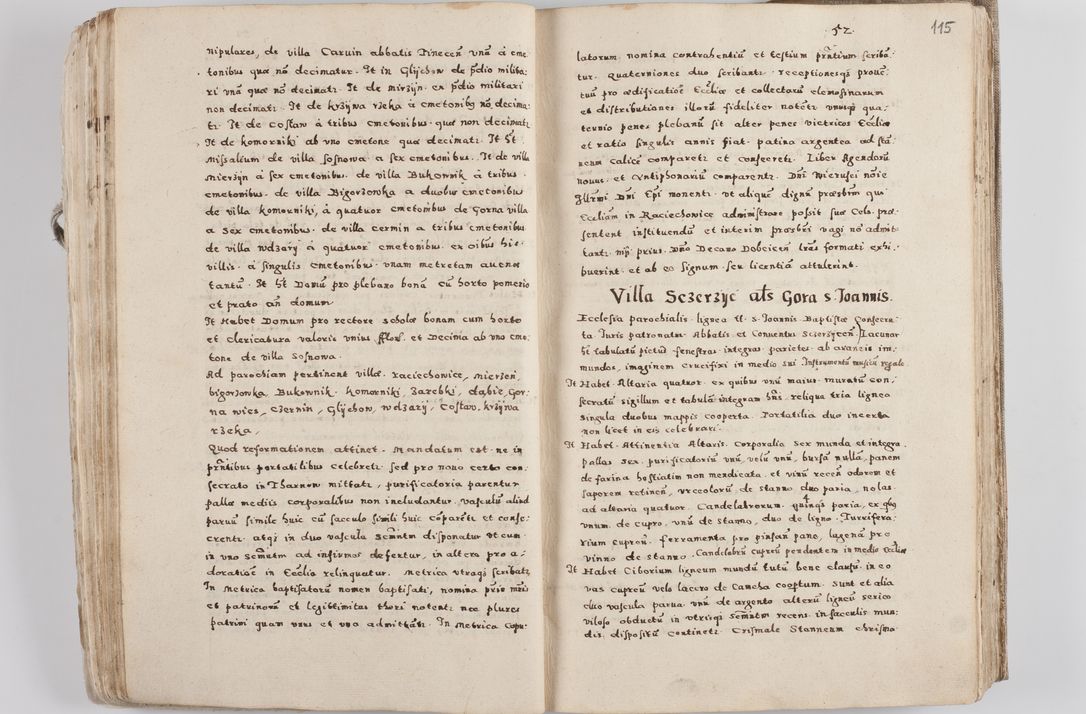 nipulares, de villa Caruin abbatis Tinecen̄ vnā á cme
tonibus quæ nō decimatur. It in Glijchow de p̄dio milita
ri vnā quæ nō decimatr. It de mirzijn. ex p̄dio militari
non decimatr. It de krzijwa rzeka á cmetonibꝫ nō decima
tr. It de Costaw á tribus cmetonibus. quæ non decimatr
It de komorniki ab vno cmetone quæ decimatr. It ht
missalium de villa sosnowa. a sex cmetonibus. It de villa
mierzijn á sex cmetonibus. de villa Bukownik á tribus
cmetonibus. de villa Bigorzowka a duobus cmetonibus
de villa komorniki, á quatuor cmetonibus de Gorna villa
a sex cmetonibus. de villa cermin a tribus cmetonibus
de villa wdzarij á quatuor cmetonibus. ex oibus his
villis. á singulis cmetonibus. vnam metretam auenæ
tantū. It ht Domū pro plebano bonā cū horto pomerio
et prato an̄ domum
It Habet Domum pro rectore scholæ bonam cum horto
et clericatura valoris vnius flor. et Decima ab vno cme
tone de villa sosnowa.
Ad parochiam pertinent villæ. raciechowice, mierzen,
bigorzowka, Bukownik. komorniki, zarebki, dabie, Gor,
na wies, czernin, Glijchow, wdzarij, Costaw, krzijwa
rzeka,
Quod reformationem attinet. Mandatum est. ne in
pr̄ntibus portatilibus celebretr. sed pro nouo certo con,
secrato in Tharnow mittatr, purificatoria parentur
pallæ mediis corporalibus non includantur. vasculū aliud
paruū simile huic cū sacculo simili huic cōparetr et conse,
cretr. atqꝫ in duo vascula scrm̄tm disponatur vt cum
in vno scrm̄tm ad infirmos defertur, in altero pro a,
doratiōe in Eccliā relinquatur. metrica vtraqꝫ scribatr
In metrica baptisatorū nomen baptisati, nomina prīs mr̄is
et patrinorū et legittimitas thori notentr nec plures
patrini quam vnus et vna admittātr. In metrica copu:
52.
115
latorum nomina contrahentiū et testium pr̄ntium scribā
tur. quaterniones duo scribantr. receptionesqꝫ prouē
tuū pro ædificatiōe Eccliæ et collectarū elemosinarum
et distributiones illorū fideliter notētr vnusqꝫ qua,
ternio penes plebanū sit alter penes victricos Eccliæ
et ratio singulis annis fiat. patina argentea ad stā
neum calicē comparetr et consecretr. Liber Agendorū
nouus. et Antiphonarium comparentr. Dn̄i wierusci nōie
Illr̄mi Dn̄i Epi monentr. vt aliquē dignū præsbrm qui
Eccliam in Raciechowice administrare possit suæ Cels. præ,
sentent instituendū et interim præsbri vagi nō admit
tantr. nisi prius. Dn̄o Decano Dobcicen̄ lr̄as formati exhi,
buerint. et ab eo signum. seu licentiā attulerint.
Villa Sczerzijc ał̄s Gora s. Ioannis.
Ecclesia parochialis. lignea tt. s. Ioannis. Baptistæ Consecra,
ta. Iuris patronatus. Abbatis et Conuentus sczerzijcen̄. Lacunar
ht tabulatū pictū fenestras. integras. parietes. ab araneis im,
mundos, imaginem Crucifixi in medio sui Instrumentū musicū regale
It Habet. Altaria quatuor. ex quibus vnū maius. muratū con,
secratū sigillum et tabulā integram hn̄s. reliqua tria lignea
singula duobus mappis cooperta. Portatilia duo incerta
non licet in eis celebrari
It Habet. Attinentia Altaris. Corporalia sex munda et integra.
pallas sex. purificatoriū vnū, velū vnū, bursā nullā, panem
de farina hostiatim non mendicata. et vinū recen̄ odorem et
saporem retinen̄, vrceolorū de stanno, duo paria, nolas
ad altaria quatuor. Candelabrorum. quinqꝫ paria, ex qbꝫ
vnum de cupro, vnū de stanno, duo de ligno. Turrifera,
rium cupreū. ferramenta pro pinsan̄ pane, lagenā pro
vinno de stanno. Candelabrū cupreū pendentem in medio eccliæ
It Habet Ciborium ligneum mundū tutū bene clausū. in eo
vas cupreū velo lacero de Cancha coopertum. sunt et alia
duo vascula parua vnū de argento alterū ligneū serico
viloso obductū in vtrisqꝫ scrm̄tm recens. in sacculis mun:
dis. dispositū continetr. Crismale stanneum chrisma